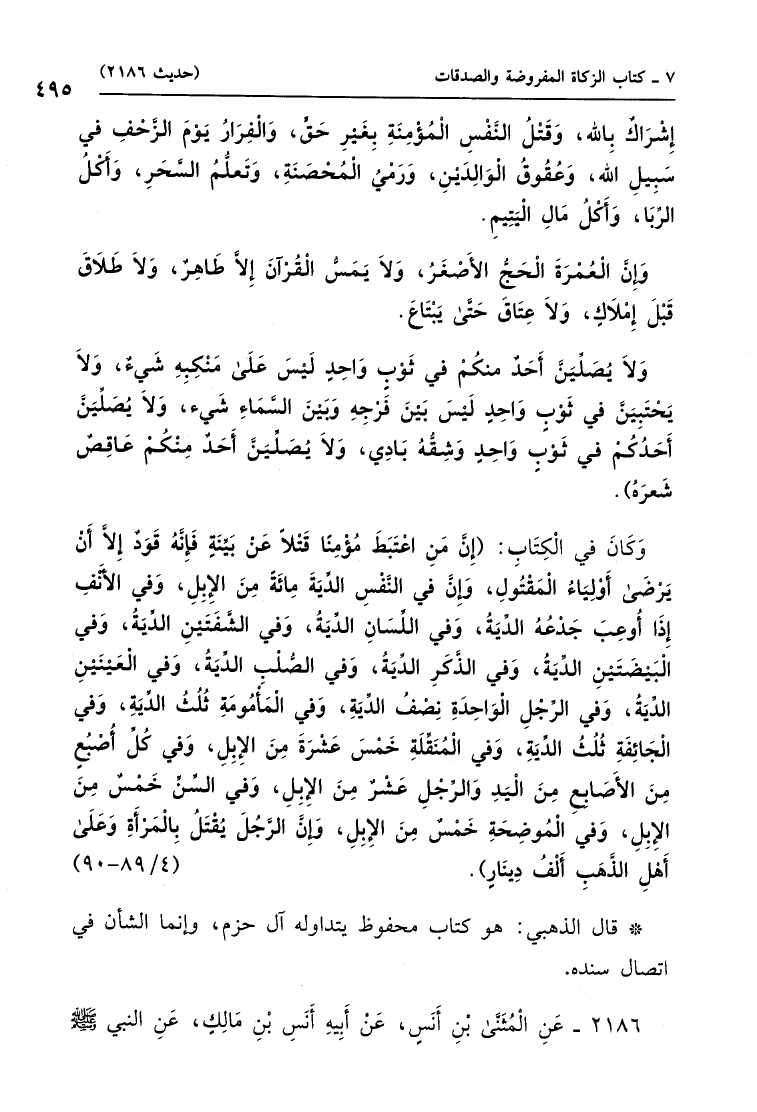 ٧ ـ كتاب الزكاة المفروضة والصدقات (حديث ٢١٨٦) ٤٩٥
إِشْرَاكٌ بِالله، وَقَتْلُ النَّفْسِ الْمُؤْمِنَةِ بِغَيرِ حَقٍّ، وَالْفِرَارُ يَوْمَ الزَّحْفِ في
سَبِيلِ الله، وَعُقُوقُ الْوَالِدَيْنِ، وَرَمْيُ الْمُحْصَنَةِ، وَتَعلُّمُ السَّحَرِ، وَأَكْلُ
الرِّبَا، وَأَكْلُ مَالِ الْيَتِيمِ.
وَإِنَّ الْعُمْرَةَ الْحَجُّ الأَصْغَرُ، وَلاَ يَمَسُّ الْقُرْآنَ إِلاَّ طَاهِرٌ، وَلاَ طَلَاقَ
قَبْلَ إِمْلَاكٍ، وَلاَ عِتَاقَ حَتَّىٰ يَبْتَاعَ.
وَلاَ يُصَلِّيَنَّ أَحَدٌ منكُمْ في ثَوْبٍ وَاحِدٍ لَيْسَ عَلَىٰ مَنْكِبِهِ شَيءٌ، وَلاَ
يَحْتَبِيَنَّ في ثَوْبٍ وَاحِدٍ لَيْسَ بَيْنَ فَرْجِهِ وَبَيْنَ السَّمَاءِ شَيء، وَلاَ يُصَلِّيَنَّ
أَحَدُكُمْ في ثَوْبٍ وَاحِدٍ وَشِقُّهُ بَادِي، وَلاَ يُصَلِّيَنَّ أَحَدٌ مِنْكُمْ عَاقِصٌ
شَعرَهُ).
وَكَانَ في الْكِتَابِ: (إِنَّ مَنِ اعْتَبَطَ مُؤْمِنًا قَتْلاً عَنْ بَيِّنَةٍ فَإِنَّهُ قَوَدٌ إِلاَّ أَنْ
يَرْضَىٰ أَوْلِيَاءُ الْمَقْتُولِ، وَإِنَّ في النَّفْسِ الدِّيَةَ مِائَةً مِنَ الإِبِلِ، وَفي الأَنْفِ
إِذَا أُوعِبَ جَدْعُهُ الدِّيَةُ، وَفي اللِّسَانِ الدِّيَةُ، وَفي الشَّفَتَيْنِ الدِّيَةُ، وَفي
الْبَيْضَتَيْنِ الدِّيَةُ، وَفي الذَّكَرِ الدِّيَةُ، وَفي الصُّلْبِ الدِّيَةُ، وَفي الْعَيْنَيْنِ
الدِّيَةُ، وَفي الرِّجْلِ الْوَاحِدَةِ نِصْفُ الدِّيَةِ، وَفي الْمَأْمُومَةِ ثُلُثُ الدِّيَةِ، وَفي
الْجَائِفَةِ ثُلُثُ الدِّيَةِ، وَفي الْمُنَقِّلَةِ خَمْسَ عَشْرَةَ مِنَ الإِبِلِ، وَفي كُلِّ أُصْبُعٍ
مِنَ الأَصَابِعِ مِنَ الْيَدِ وَالرِّجْلِ عَشْرٌ مِنَ الإِبِلِ، وَفي السِّنِّ خَمْسٌ مِنَ
الإِبِلِ، وَفي الْمُوضِحَةِ خَمْسٌ مِنَ الإِبِلِ، وَإِنَّ الرَّجُلَ يُقْتَلُ بِالْمَرْأَةِ وَعَلَىٰ
أَهْلِ الذَّهَبِ أَلْفُ دِينَارٍ). (٤/ ٨٩ـ٩٠)
* قال الذهبي: هو كتاب محفوظ يتداوله آل حزم، وإنما الشأن في
اتصال سنده.
٢١٨٦ ـ عَنِ الْمُثَنَّىٰ بْنِ أَنَسٍ، عَنْ أَبِيهِ أَنَسِ بْنِ مَالِكٍ، عَنِ النبي ﷺ